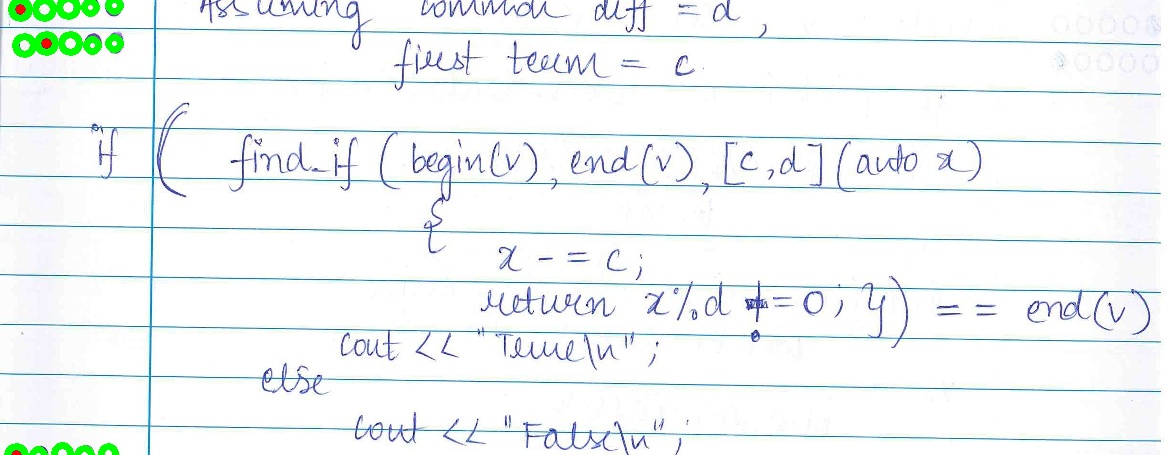 Assuming common diff = d,
first term = c.
if ( find_if ( begin(v), end(v), [c,d] (auto x)
{
x -= c;
return x%d != 0; }) == end(v)
cout << "True\n";
else
cout << "False\n";